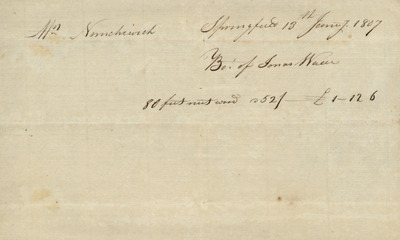 Mr. Nemchewich Springfield 13th Jany 1807
Bot. of Jonas Wade
80 feet nut wood @ 52/ — £ 1-12 6